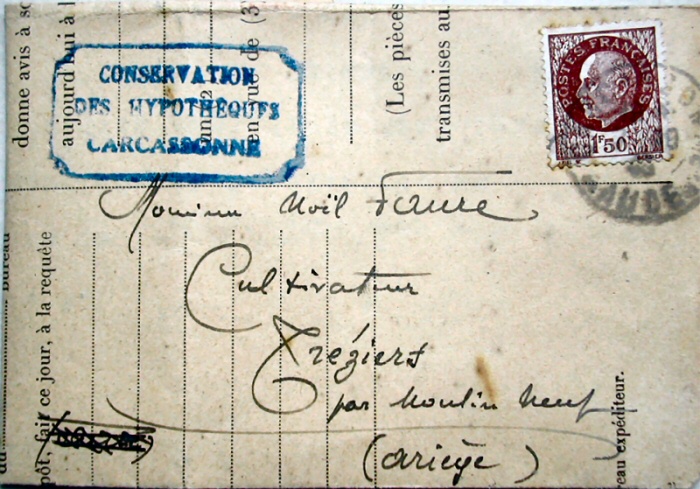 CONSERVATION
DES HYPOTHEQUES
CARCASSONNE
POSTES FRANÇAISES
1F50
Monsieur Noël Faure
Cultivateur
Tréziers
par Moulin Neuf
(Ariège)
donne avis à so
aujourd'hui à l
en vue de (3)
(Les pièces
transmises au
du
bureau
pôt, fait ce jour, à la requête
eau expéditeur.